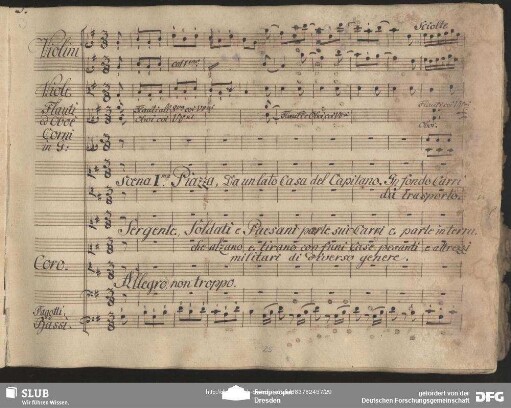 Violini
Sciolte
col 1mo
Viole
Flauti
ed Oboe
Flauti all' 8va col Vno
Oboe col Vno
Flauti e Oboe col Vno
Oboe
Corni
in G:
Scena 1ma Piazza, Da un lato Casa del Capitano, In fondo Carri
da trasporto.
Sergente, Soldati e Paesani parte sui Carri e parte in terra
che alzano e tirano con funi Casse pesanti e attrezzi
militari di diverso genere.
Coro.
Allegro non troppo.
Fagotti
Bassi
SLUB
Wir führen Wissen.
http://d
Dresden
gefördert von der
Deutschen Forschungsgemeinschaft
DFG